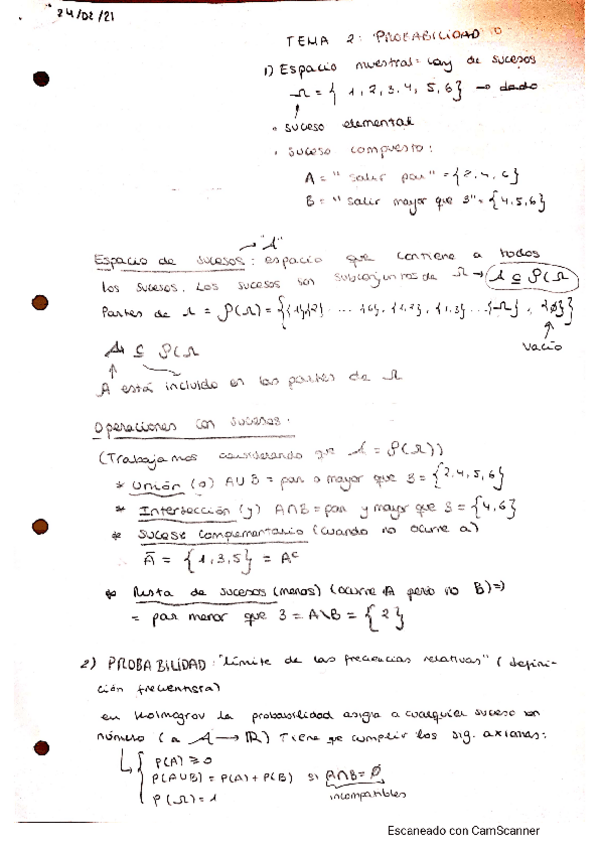 24/02/21
TEMA 2: PROBABILIDAD
1) Espacio muestral = conj de sucesos
Ω = { 1, 2, 3, 4, 5, 6} → dado
• suceso elemental
• suceso compuesto:
A = "salir par" = {2, 4, 6}
B = "salir mayor que 3" = {4, 5, 6}
→ "A"
Espacio de sucesos: espacio que contiene a todos
los sucesos. Los sucesos son subconjuntos de Ω → A ⊆ P(Ω
Partes de Ω = P(Ω) = {{1}{2} ... {6}, {1,2}, {1,3} ... {Ω}, {∅}}
vacío
A ⊆ P(Ω
A está incluido en las partes de Ω
Operaciones con sucesos:
(Trabajamos considerando que A = P(Ω))
* Unión (o) A∪B = par o mayor que 3 = {2,4,5,6}
* Intersección (y) A∩B = par y mayor que 3 = {4,6}
* Suceso complementario (cuando no ocurre a)
Ā = {1,3,5} = Aᶜ
* Resta de sucesos (menos) (ocurre A pero no B) =)
= par menor que 3 = A\B = {2}
2) PROBABILIDAD: "límite de las frecuencias relativas" (defini-
ción frecuentista)
en Kolmogrov la probabilidad asigna a cualquier suceso un
número (a A → ℝ) Tiene que cumplir los sig. axiomas:
P(A) ≥ 0
P(A∪B) = P(A) + P(B) si A∩B = ∅
incompatibles
P(Ω) = 1
Escaneado con CamScanner